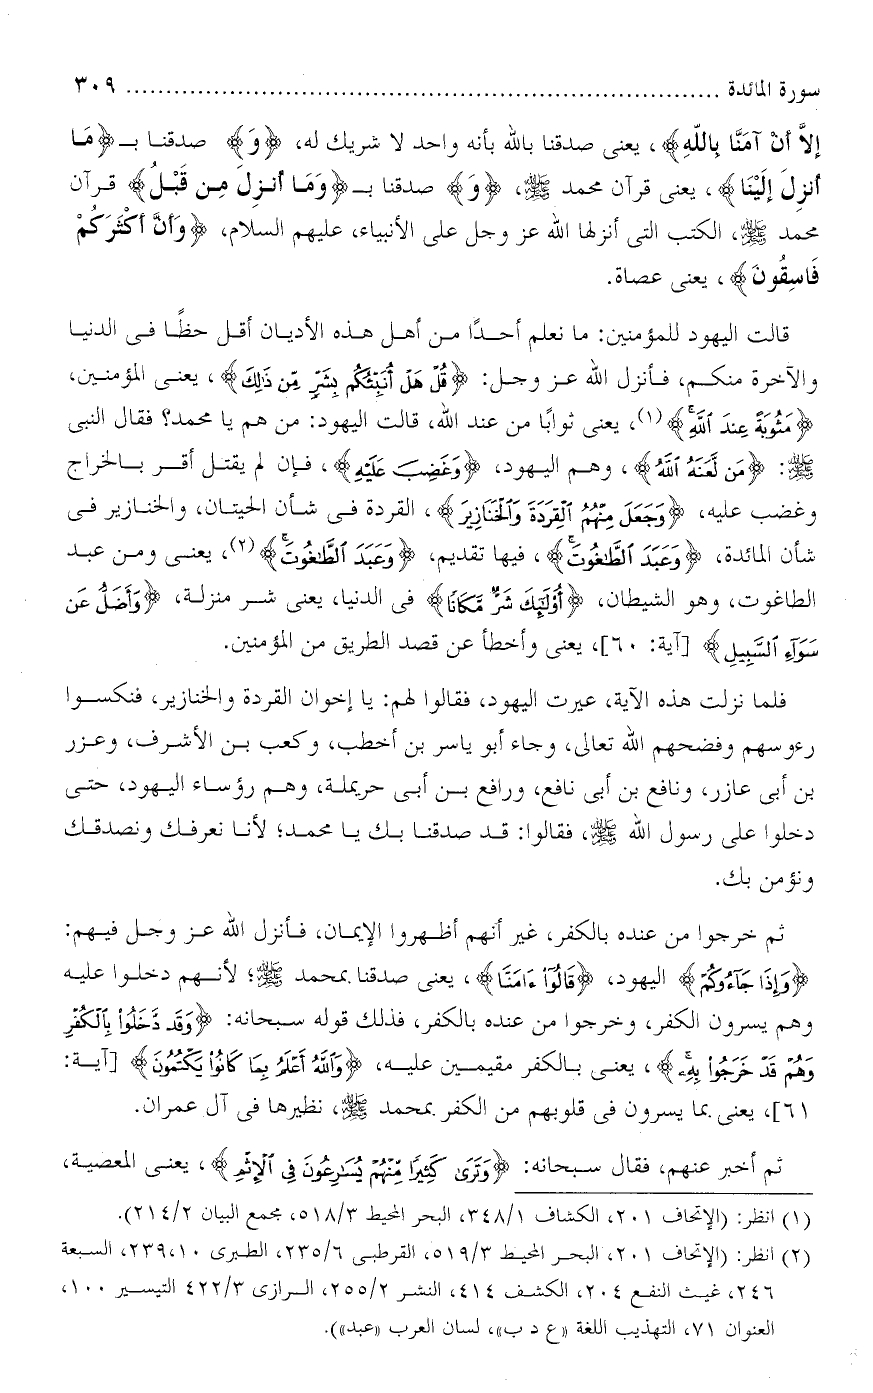 سورة المائدة ........................................................................ ٣٠٩
إلاَّ أنْ آمَنَّا بِاللَّهِ﴾، يعنى صدقنا بالله بأنه واحد لا شريك له، ﴿وَ﴾ صدقنا بـ ﴿مَا
أنزِلَ إلَيْنَا﴾، يعنى قرآن محمد ﷺ، ﴿وَ﴾ صدقنا بـ ﴿وَمَا أنزِلَ مِن قَبْلُ﴾ قرآن
محمد ﷺ، الكتب التى أنزلها الله عز وجل على الأنبياء، عليهم السلام، ﴿وَأنَّ أكْثَرَكُمْ
فَاسِقُونَ﴾، يعنى عصاة.
قالت اليهود للمؤمنين: ما نعلم أحدًا من أهل هذه الأديان أقل حظًا فى الدنيا
والآخرة منكم، فأنزل الله عز وجل: ﴿قُلْ هَلْ أُنَبِّئُكُم بِشَرٍّ مِّن ذَٰلِكَ﴾، يعنى المؤمنين،
﴿مَثُوبَةً عِندَ ٱللَّهِ ۚ﴾(١)، يعنى ثوابًا من عند الله، قالت اليهود: من هم يا محمد؟ فقال النبى
ﷺ: ﴿مَن لَّعَنَهُ ٱللَّهُ﴾، وهم اليهود، ﴿وَغَضِبَ عَلَيْهِ﴾، فإن لم يقتل أقر بالخراج
وغضب عليه، ﴿وَجَعَلَ مِنْهُمُ ٱلْقِرَدَةَ وَٱلْخَنَازِيرَ﴾، القردة فى شأن الحيتان، والخنازير فى
شأن المائدة، ﴿وَعَبَدَ ٱلطَّٰغُوتَ ۚ﴾، فيها تقديم، ﴿وَعَبَدَ ٱلطَّٰغُوتَ ۚ﴾(٢)، يعنى ومن عبد
الطاغوت، وهو الشيطان، ﴿أُوْلَٰٓئِكَ شَرٌّ مَّكَانًا﴾ فى الدنيا، يعنى شر منزلة، ﴿وَأَضَلُّ عَن
سَوَآءِ ٱلسَّبِيلِ﴾ [آية: ٦٠]، يعنى وأخطأ عن قصد الطريق من المؤمنين.
فلما نزلت هذه الآية، عيرت اليهود، فقالوا لهم: يا إخوان القردة والخنازير، فنكسوا
رءوسهم وفضحهم الله تعالى، وجاء أبو ياسر بن أخطب، وكعب بن الأشرف، وعزر
بن أبى عازر، ونافع بن أبى نافع، ورافع بن أبى حريملة، وهم رؤساء اليهود، حتى
دخلوا على رسول الله ﷺ، فقالوا: قد صدقنا بك يا محمد؛ لأنا نعرفك ونصدقك
ونؤمن بك.
ثم خرجوا من عنده بالكفر، غير أنهم أظهروا الإيمان، فأنزل الله عز وجل فيهم:
﴿وَإِذَا جَآءُوكُمْ﴾ اليهود، ﴿قَالُوٓاْ ءَامَنَّا﴾، يعنى صدقنا بمحمد ﷺ؛ لأنهم دخلوا عليه
وهم يسرون الكفر، وخرجوا من عنده بالكفر، فذلك قوله سبحانه: ﴿وَقَد دَّخَلُواْ بِٱلْكُفْرِ
وَهُمْ قَدْ خَرَجُواْ بِهِۦ ۚ﴾، يعنى بالكفر مقيمين عليه، ﴿وَٱللَّهُ أَعْلَمُ بِمَا كَانُواْ يَكْتُمُونَ﴾ [آية:
٦١]، يعنى بما يسرون فى قلوبهم من الكفر بمحمد ﷺ، نظيرها فى آل عمران.
ثم أخبر عنهم، فقال سبحانه: ﴿وَتَرَىٰ كَثِيرًا مِّنْهُمْ يُسَٰرِعُونَ فِى ٱلْإِثْمِ﴾، يعنى المعصية،
(١) انظر: (الإتحاف ٢٠١، الكشاف ٣٤٨/١، البحر المحيط ٥١٨/٣، مجمع البيان ٢١٤/٢).
(٢) انظر: (الإتحاف ٢٠١، البحر المحيط ٥١٩/٣، القرطبى ٢٣٥/٦، الطبرى ٢٣٩،١٠، السبعة
٢٤٦، غيث النفع ٢٠٤، الكشف ٤١٤، النشر ٢٥٥/٢، الرازى ٤٢٢/٣ التيسير ١٠٠،
العنوان ٧١، التهذيب اللغة «ع د ب»، لسان العرب «عبد»).